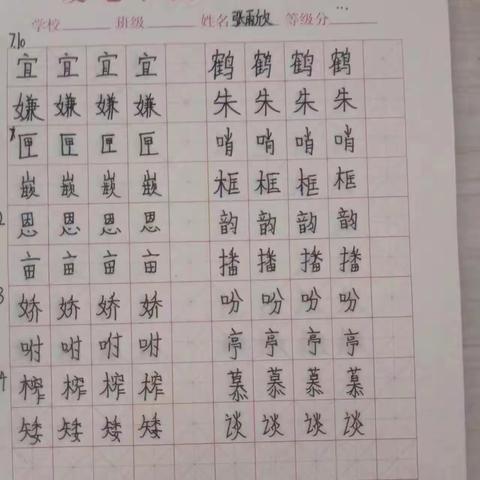 学校 班级 姓名 张雨欣 等级分
7.10
宜 宜 宜 宜 鹤 鹤 鹤 鹤
嫌 嫌 嫌 嫌 朱 朱 朱 朱
匣 匣 匣 匣 哨 哨 哨 哨
嵌 嵌 嵌 嵌 框 框 框 框
2 恩 恩 恩 恩 韵 韵 韵 韵
亩 亩 亩 亩 播 播 播 播
3 娇 娇 娇 娇 吩 吩 吩 吩
咐 咐 咐 咐 亭 亭 亭 亭
4 榨 榨 榨 榨 慕 慕 慕 慕
矮 矮 矮 矮 谈 谈 谈 谈